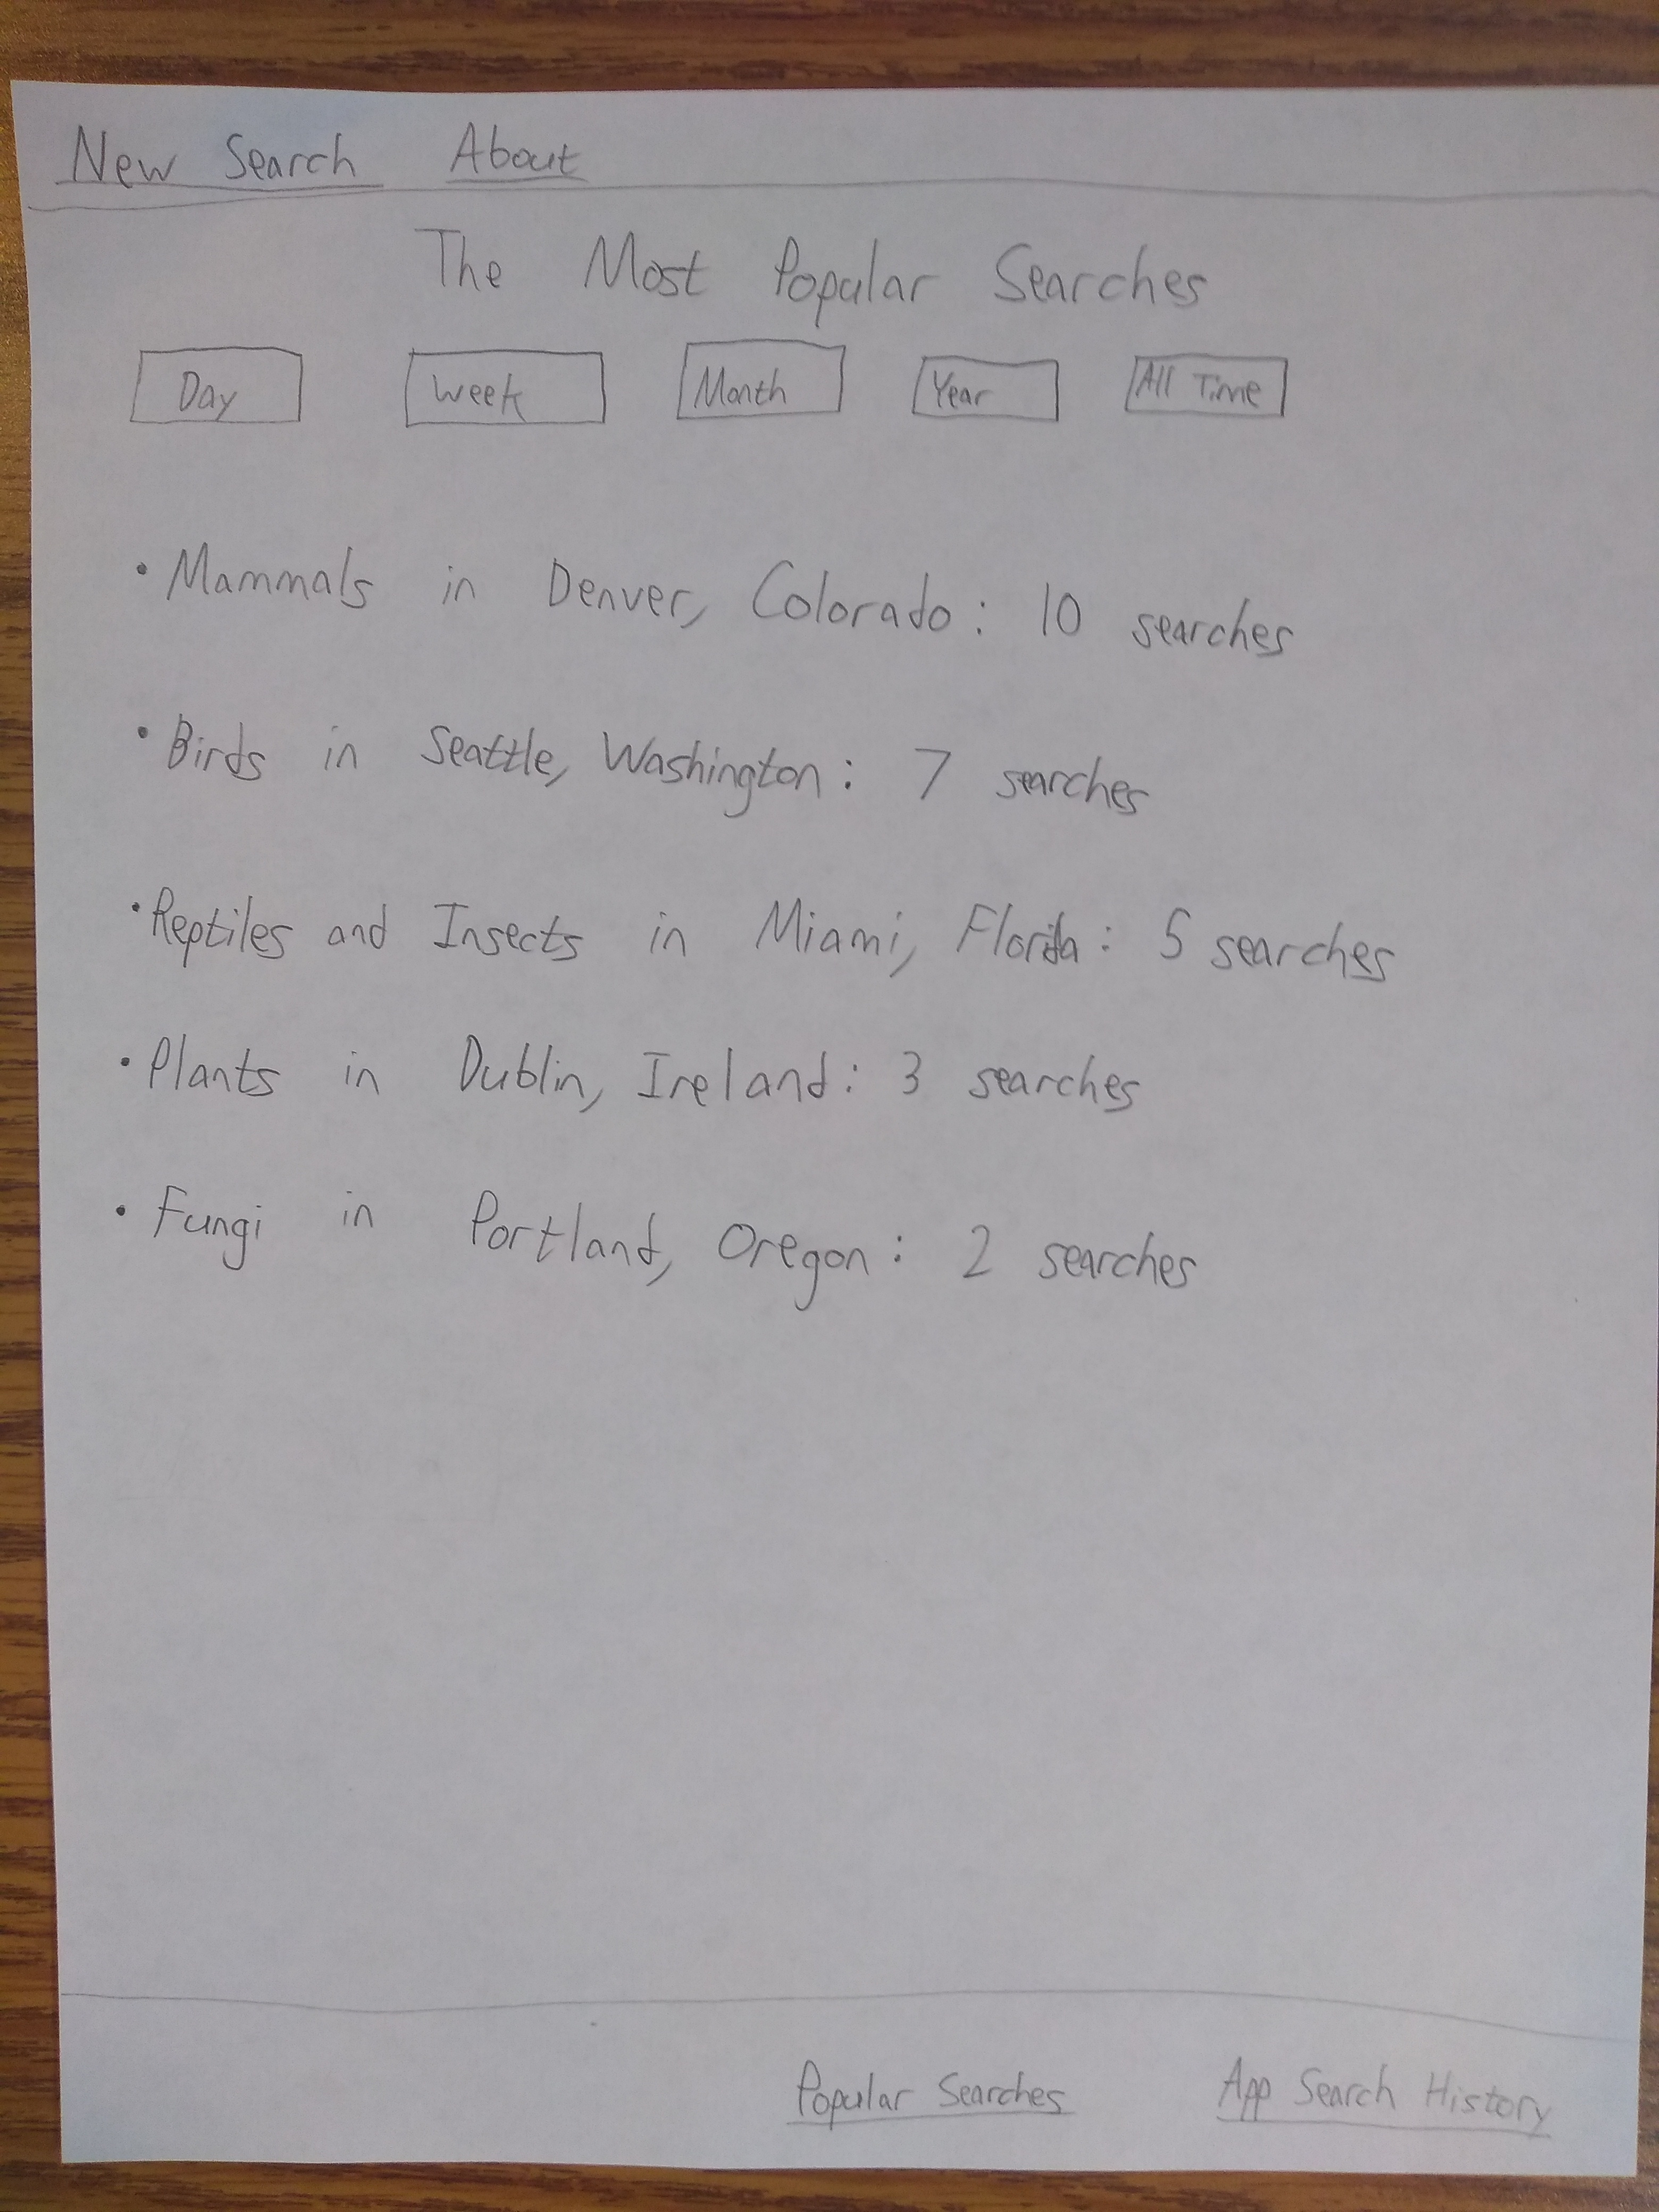 New Search About
The Most Popular Searches
Day Week Month Year All Time
• Mammals in Denver, Colorado: 10 searches
• Birds in Seattle, Washington: 7 searches
• Reptiles and Insects in Miami, Florida: 5 searches
• Plants in Dublin, Ireland: 3 searches
• Fungi in Portland, Oregon: 2 searches
Popular Searches App Search History